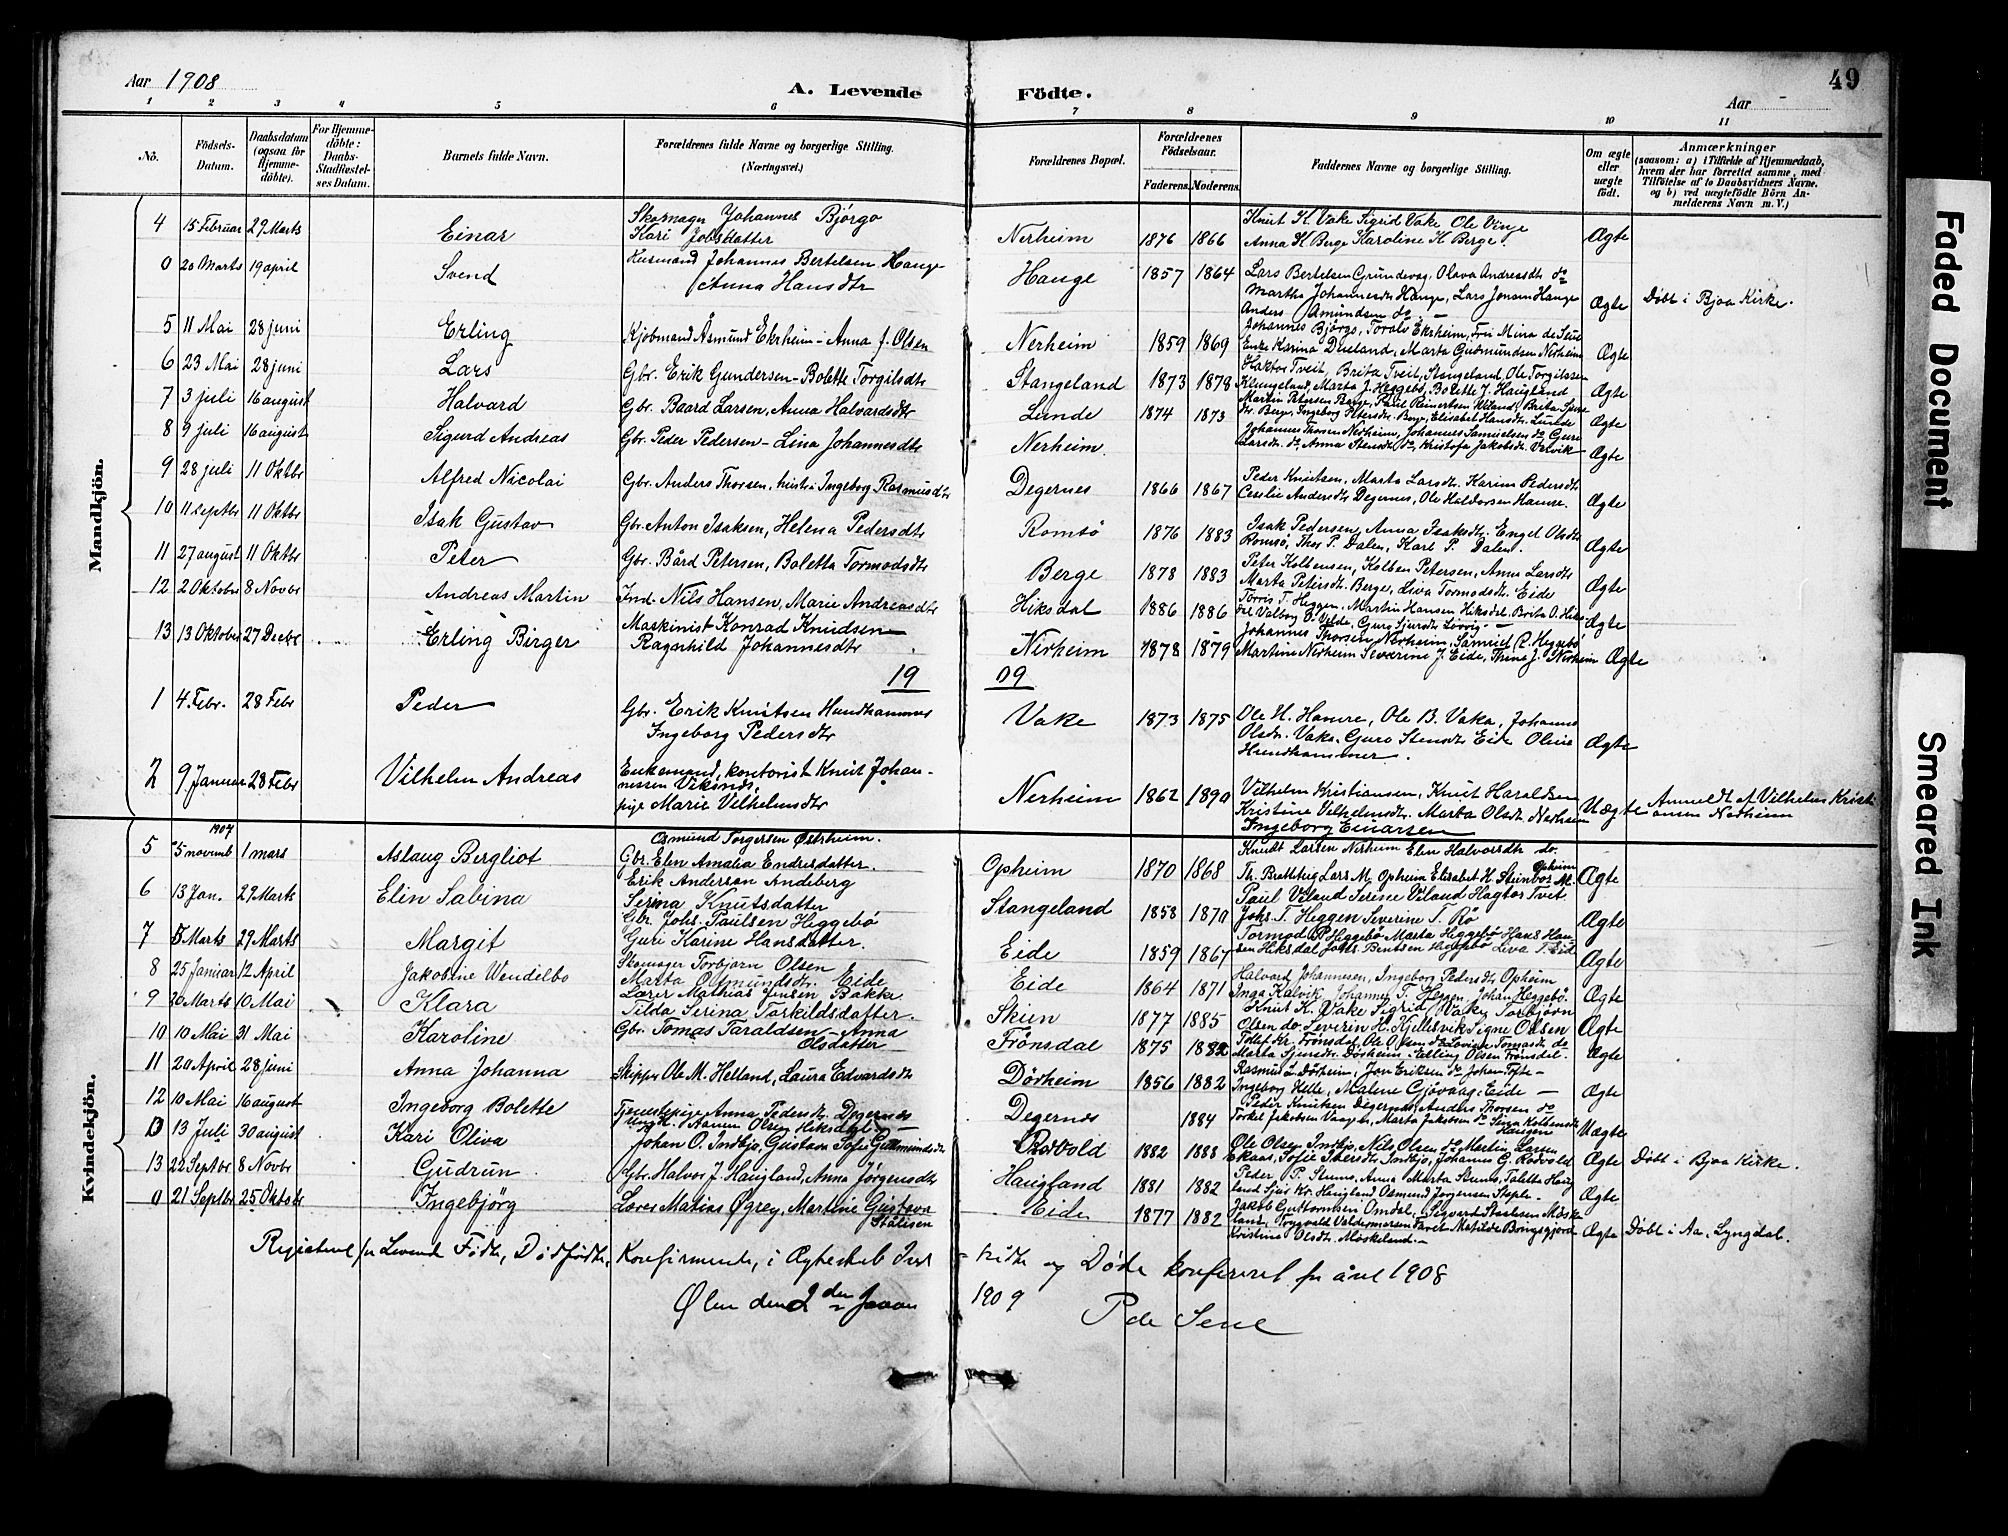 Aar 1908
A. Levende Fødte.
Aar
49
1 2 3 4 5 6 7 8 9 10 11
No.
Födsels-Datum.
Daabsdatum (ogsaa for Hjemme-döbte).
For Hjemme-döbte: Daabs-Stadfæstel-ses Datum.
Barnets fulde Navn.
Forældrenes fulde Navne og borgerlige Stilling. (Næringsvei.)
Forældrenes Bopæl.
Forældrenes Födselsaar.
Faderens. Moderens.
Faddernes Navne og borgerlige Stilling.
Om ægte eller uægte födt.
Anmærkninger
(saasom: a) i Tilfælde af Hjemmedaab, hvem der har forrettet samme, med Tilföielse af to Daabsvidners Navne, og b) ved uægtefödte Börn An-melderens Navn m. V.)
Mandkjön.
4 15 Februar 29 Marts Einar Skomager Johannes Bjørgo Kari Jobsdatter Nerheim 1876 1866 Knut K. Vake Sigrid Vake Ole Vinje Anna H Berge Karoline H Berge Ægte
0 20 Marts 19 april Svend Husmand Johannes Bertelsen Hauge Anna Hansdtr Hauge 1857 1864 Lars Bertelsen Grundevag, Olava Andreasdtr do Martha Johannesdtr Hauge, Lars Jonsen Hauge Anders Amundsen do Ægte Døbt i Bjoa Kirke.
5 11 Mai 28 juni Erling Kjøbmand Åsmund Ekrheim - Anna f. Olsen Nerheim 1859 1869 Johannes Bjørgo, Torals Ekrheim, Frøi Mina de Seue Enke Karina Dueland, Marta Gudmundsen Nerheim Ægte
6 23 Mai 28 juni Lars Gbr. Erik Gundersen - Bolette Torgilsdtr Stangeland 1873 1878 Haktor Tveit, Brita Tveit, Stangeland, Ole Torgilssen Klungeland, Marta J. Heggebø, Bolette J. Haugland Ægte
7 3 juli 16 august Halvard Gbr. Baard Larsen, Anna Halvardsdtr Lunde 1874 1873 Martin Petersen Berge, Paul Reinertsen Viland, Brita dtr. Berge, Ingeborg Petersdtr. Berge, Elisabet Hansdtr. Lunde Ægte
8 9 juli 16 august Sigurd Andreas Gbr. Peder Pedersen - Lina Johannesdtr Nerheim. Johannes Thorsen Nerheim, Johannes Samuelsen do Guro Larsdtr. do, Anna Stensdtr do, Kristofa Jakobsdtr Vervik Ægte
9 28 juli 11 Oktbr Alfred Nicolai Gbr. Anders Thorsen, hustru Ingeborg Rasmusdtr Degernes 1866 1867 Peder Knutsen, Marta Larsdt. Karina Pedersdtr Cecilie Andersdtr Degernes, Ole Haldorsen Hamre. Ægte
10 11 septbr 11 Oktbr Isak Gustav Gbr. Anton Isaksen, Helena Pedersdtr Romsö 1876 1883 Isak Pedersen, Anna Isaksdtr. Engel Olsdtr Romsö, Thor P. Dalen, Kari P. Dalen. Ægte
11 27 august 11 Oktbr Peter Gbr. Bård Petersen, Boletta Tormodsdtr Berge 1878 1883 Peter Kolbensen, Kolben Petersen, Anna Larsdtr Marta Petersdtr. Berge, Liva Tormodsdtr. Eide Ægte
12 2 Oktober 8 Novbr Andreas Martin Ind. Nils Hansen, Marie Andreasdtr Hiksdal 1886 1886 Torris T. Heggen, Martin Hansen Hiksdal, Brita O. Valborg O. Velde, Guro Sjursdtr Løvvig Ægte
13 13 Oktober 27 Decbr Erling Birger Maskinist Konrad Knudsen Ragnhild Johannesdtr Nerheim 1878 1879 Johannes Thorsen Nerheim, Samuel P. Heggebø Martine Nerheim Severine J. Eide, Thina J. Nerheim Ægte
19 09
1 4 Febr. 28 Febr Peder Gbr. Erik Knutsen Hundhammer Ingeborg Pedersdtr Vake 1873 1875 Ole H. Hamre, Ole B. Vaka, Johanna Olsdtr. Vaka. Guro Stensdtr Eide Oline Hundhammer. Ægte
2 9 Januar 28 Febr Vilhelm Andreas Enkemand, kontorist Knut Johan-nessen Vikanes, pige Marie Vilhelmsdtr Nerheim 1862 1890 Vilhelm Kristiansen, Knut Haraldsen Kristine Vilhelmsdtr. Marta Olsdtr Nerheim Ingeborg Einarsen Uægte Anmeldt af Vilhelm Kristi ansen Nerheim
Kvindekjön.
5 1907 5 novemb 1 mars Aslaug Bergliot Osmund Torgersen Østrheim. Gbr. Elen Amalia Endresdatter. Opheim 1870 1868 Knudt Larsen Nerheim Elen Halvorsdtr do. Th. Bratteberg Lars M. Opheim Elisabet H. Steinbor M. Opheim Ægte
6 13 Jan. 29 Marts Elin Sabina Erik Anderson Andeberg Serina Knutsdatter Stangeland 1858 1870 Paul Viland Serine Viland Hagtor Tveit Johs. T. Heggen Severine T. Rø Ægte
7 5 Marts 29 Marts Margit Gbr. Johs. Paulsen Heggebø Guri Karine Hansdatter. Eide 1859 1867 Tormod P Heggebø Marta Heggebø Hans Han-sen Hiksdal Johs. Bentsen Heggebø Liva T. Eide Ægte
8 25 Januar 12 April Jakobine Wendelbo Skomager Torbjørn Olsen Marta Osmundsdtr. Eide Eide 1864 1871 Halvard Johannesen, Ingeborg Pedersdtr Opheim Inga Kalvik Johannes T. Heggen, Johan Heggebø. Ægte
9 20 Marts 10 Mai Klara Lærer Mathias Jensen Bakke Tilda Serina Torkildsdatter. Skien 1877 1885 Knut K. Vake Sigrid Vake, Torbjørn Olsen do Severin H. Kjellesvik Signe Olsen Ægte
10 10 Mai 31 Mai Karoline Gbr. Tomas Taraldsen - Anna Olsdatter Frönsdal 1875 1882 Tollef Kr. Frønsdal, Ole Olsen do Lovise Tomasdtr do Marta Sjursdtr. Dörheim. Salling Olsen Frønsdal. Ægte
11 20 April 28 juni Anna Johanna Skipper Ole M. Helland, Laura Edvardsdtr Dörheim 1856 1882 Rasmus L. Dörheim, Jon Eriksen do Johan Tofte - Ingeborg Helle, Malene Gjövaag, Eide - Ægte
12 10 Mai 16 august Ingeborg Bolette Tjenestepige Anna Pedersdtr. Degernes Ungk. Aamun Olsen Hiksdal - Degernes 1884 Peder Knutsen Degernes, Anders Thorsen do Torkel Jakobsen Vaagen, Marta Jakobsen do Serina Kolbensdtr Haugen Uægte
0 13 Juli 30 august Kari Oliva Johan O. Indbjo, Gustava Sofie Gudmundsdtr Rødvold 1882 1888 Ole Olsen Indbjo, Nils Olsen do Martin Larsen Ekaas, Sofie Iversdtr Indbjo, Johannes G. Rødvold Ægte Døbt i Bjoa Kirke.
13 22 Septbr 8 Novbr Gudrun Gbr. Halvor J. Haugland, Anna Jørgensdtr Haugland 1881 1882 Peder P. Stumo, Anna Marta Stumo, Taletta Haug land Sjur Kr. Haugland Osmund Jørgensen Steple Ægte
0 21 Septbr 25 Oktobr Ingebjörg Lærer Matias Øgrey, Martine Gustava Stålesen Eide 1877 1882 Jakob Guttormsen Omdal, Sigvard Staalesen Møske land, Trygvald Valdemarsen Tveit Matilde Bringsjord Kristine Olsdtr. Møskeland. Ægte Døbt i Aa, Lyngdal.
Registeret for Levende Fødte, Dødfødte, Konfirmerede, i Ægteskab Ind-trådte og Døde konfereret for året 1908
Ølen den 2den Januar 1909
P de Seue
Faded Document
Smeared Ink